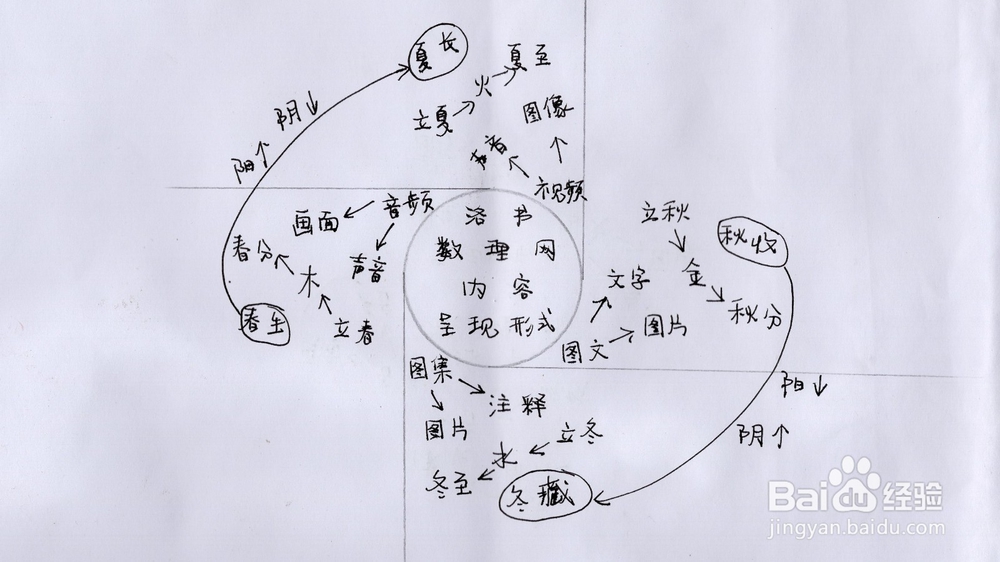 夏长
夏至
火
立夏
图像
声音
视频
阴↓
阳↑
音频
画面
声音
春分
木
立春
春生
洛书
数理网
内容
呈现形式
立秋
金
秋分
秋收
文字
图片
图文
阳↓
阴↑
图集
注释
图片
立冬
水
冬至
冬藏
Baidu经验
jingyan.baidu.com